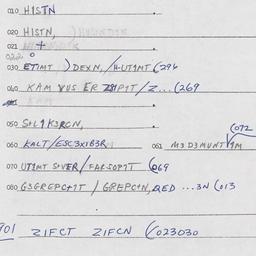 010 HISTN .
020 HISTN, .
021 +
022 0
030 ETIMT )DEXN, /H-UTIMT (294
040 KAM VUS ER /Z...(269
050 S+L1K3RCN, .
060 KALT/ESC3XIB3R 061 M3D3MUNT1M (072
070 UTIMT S+VER/FARSOPIT (069
080 G3GREPC+1T / GREPC+N, QED ...3N (013
901 ZIFCT ZIFCN (023030